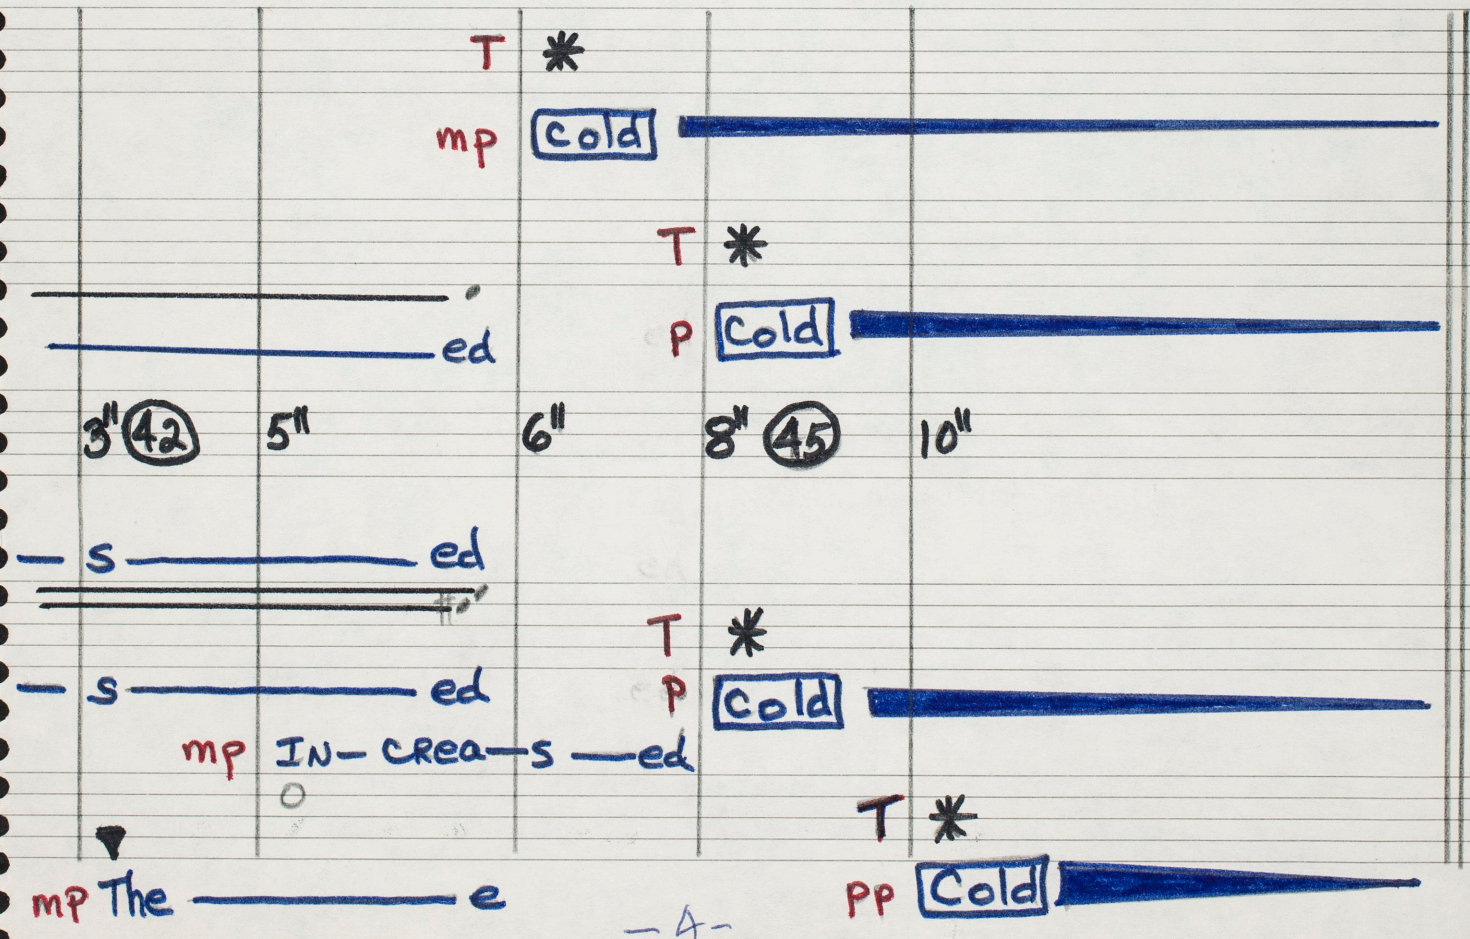 T *
mp Cold
T *
ed p Cold
3" 42 5" 6" 8" 45 10"
s ed
T *
s ed p Cold
mp IN- CREA-s-ed
T *
mp The e pp Cold
-4-